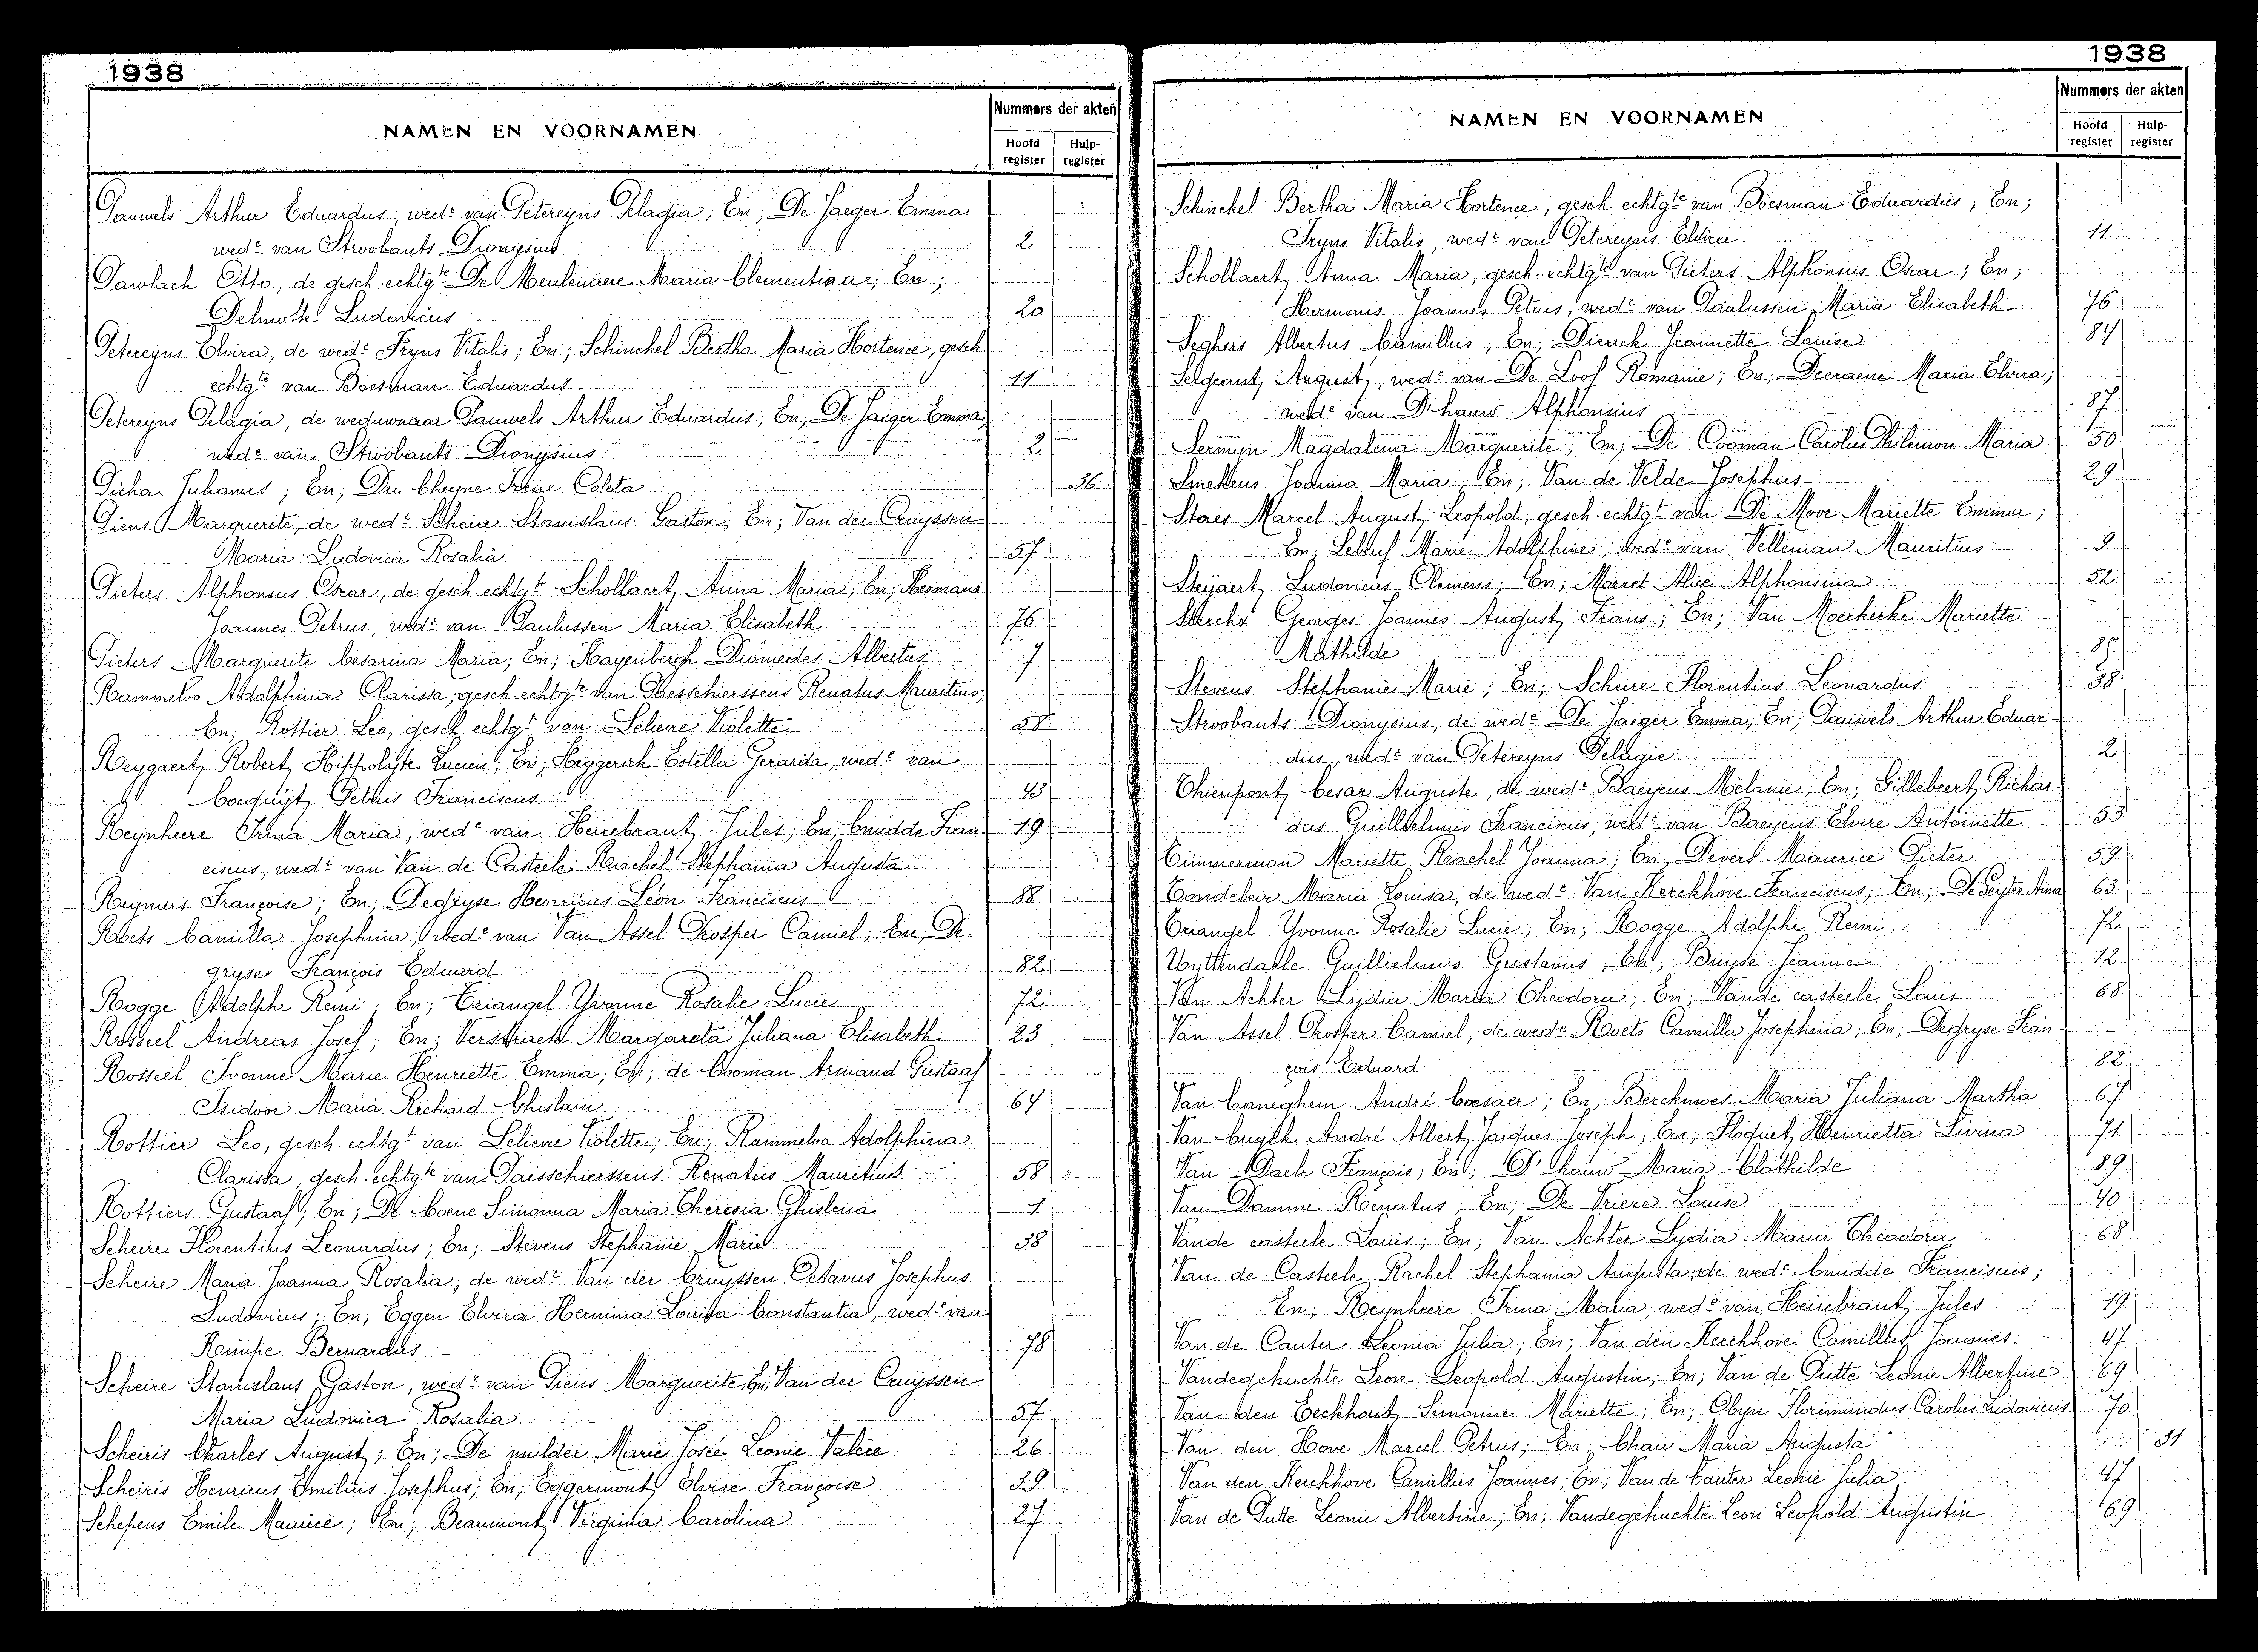 1938
NAMEN EN VOORNAMEN
Nummers der akten
Hoofd register
Hulp-register
Pauwels Arthur Eduardus, wedr van Petereyns Pelagia; En; De Jaeger Emma
wede van Stroobants Dionysius 2
Pawlach Otto, de gesch. echtgte De Meulenaere Maria Clementina; En;
Delmotte Ludovicus 20
Petereyns Elvira, de wedr Fryns Vitalis; En; Schinckel Bertha Maria Hortence, gesch.
echtgte van Boesman Eduardus 11
Petereyns Pelagia, de weduwnaar Pauwels Arthur Eduardus; En; De Jaeger Emma,
wede van Stroobants Dionysius 2
Picha Julianus; En; Du Cheyne Irène Coleta 36
Piens Marguerite, de wedr Scheire Stanislaus Gaston, En; Van der Cruyssen
Maria Ludovica Rosalia 57
Pieters Alphonsus Oscar, de gesch. echtgte Schollaert Anna Maria; En; Hermans
Joannes Petrus, wedr van Paulussen Maria Elisabeth 76
Pieters Marguerite Cesarina Maria; En; Hayenbergh Diomedes Albertus 7
Rammeloo Adolphina Clarissa, gesch. echtgte van Daesschierssens Renatus Mauritius;
En; Rottier Leo, gesch. echtgt van Lelieire Violette 58
Reygaert Robert Hippolyte Lucien; En; Heggerich Estella Gerarda, wede van
Cocquyt Petrus Franciscus. 43
Reynheere Irma Maria, wede van Heirebrant Jules; En; Cnudde Fran 19
ciscus, wedr van Van de Casteele Rachel Stephania Augusta
Reyniers Françoise; En; Degryse Henricus Léon Franciscus 88
Roets Camilla Josephina, wede van Van Assel Prosper Camiel; En; De-
gryse François Eduard 82
Rogge Adolph Remi; En; Triangel Yvonne Rosalie Lucie 72
Rosseel Andreas Josef; En; Verstraete Margareta Juliana Elisabeth 23
Rosseel Ivonne Marie Henriette Emma; En; de Cooman Armand Gustaaf
Isidoor Maria Richard Ghislain. 64
Rottier Leo, gesch. echtgt van Lelieire Violette; En; Rammeloo Adolphina
Clarissa, gesch. echtgte van Daesschierssens Renatus Mauritius. 58
Rottiers Gustaaf; En; De Coene Simonna Maria Theresia Ghislena 1
Scheire Florentius Leonardus; En; Stevens Stephanie Marie 38
Scheire Maria Joanna Rosalia, de wedr Van der Cruyssen Octavus Josephus
Ludovicus; En; Eggen Elvira Hermina Louisa Constantia, wede van
Reimpe Bernardus 78
Scheire Stanislaus Gaston, wedr van Piens Marguerite; En; Van der Cruyssen
Maria Ludovica Rosalia 57
Scheiris Charles August; En; De mulder Marie Josée Leonie Valère 26
Scheiris Henricus Emilius Josephus; En; Eggermont Elvire Françoise 39
Schepens Emile Maurice; En; Beaumont Virginia Carolina 27
1938
NAMEN EN VOORNAMEN
Nummers der akten
Hoofd register
Hulp-register
Schinckel Bertha Maria Hortence, gesch. echtgte van Boesman Eduardus; En;
Fryns Vitalis, wedr van Petereyns Elvira 11
Schollaert Anna Maria, gesch. echtgte van Pieters Alphonsus Oscar; En;
Hermans Joannes Petrus, wedr van Paulussen Maria Elisabeth 76
Seghers Albertus Camillus; En; Dierick Jeannette Louise 84
Sergeant August, wedr van De Loof Romanie; En; Decraene Maria Elvira,
wede van D'hauw Alphonsius 87
Sermyn Magdalena Marguerite; En; De Cooman Carolus Philemon Maria 50
Smekens Maria; En; Van de Velde Josephus 29
Staes Marcel August Leopold, gesch. echtgt van De Moor Mariette Emma;
En; Lebluf Marie Adolphine, wede van Velleman Mauritius 9
Steyaert Ludovicus Clemens; En; Morret Alice Alphonsina 52
Sterckx Georges Joannes August Frans; En; Van Moerkerke Mariette
Mathilde 85
Stevens Stephanie Marie; En; Scheire Florentius Leonardus 38
Stroobants Dionysius, de wede De Jaeger Emma; En; Pauwels Arthur Eduar-
dus, wedr van Petereyns Pelagie 2
Thienpont Cesar Auguste, de wedr Baeyens Melanie; En; Gillebeert Richar-
dus Guillielmus Franciscus, wedr van Baeyens Elvire Antoinette 53
Timmerman Mariette Rachel Joanna; En; Devert Maurice Pieter 59
Tondeleir Maria Louisa, de wedr Van Kerckhove Franciscus; En; De Seytre Anna 63
Triangel Yvonne Rosalie Lucie; En; Rogge Adolphe Remi 72
Uyttendaele Guillielmus Gustavus; En; Buyse Jeanne 12
Van Achter Lydia Maria Theodora; En; Vande casteele Louis 68
Van Assel Prosper Camiel, de wede Roets Camilla Josephina; En; Degryse Fran-
çois Eduard 82
Van Caneghem André Caesaer; En; Berckmoes Maria Juliana Martha 67
Van Cuyck André Albert Jacques Joseph; En; Hoquet Henrietta Livina 71
Van Daele François; En; D'hauw Maria Clothilde 89
Van Damme Renatus; En; De Vriere Louise 40
Vande casteele Louis; En; Van Achter Lydia Maria Theodora 68
Van de Casteele Rachel Stephania Augusta, de wedr Cnudde Franciscus;
En; Reynheere Irma Maria, wede van Heirebrant Jules 19
Van de Cauter Leonia Julia; En; Van den Kerckhove Camillus Joannes. 47
Vandegehuchte Leon Leopold Augustin; En; Van de Putte Leonie Albertine 69
Van den Eeckhout Simonne Mariette; En; Obyn Florimundus Carolus Ludovicus 70
Van den Hove Marcel Petrus; En; Chau Maria Augusta 31
Van den Kerckhove Camillus Joannes; En; Van de Cauter Leonie Julia 47
Van de Putte Leonie Albertine; En; Vandegehuchte Leon Leopold Augustin 69